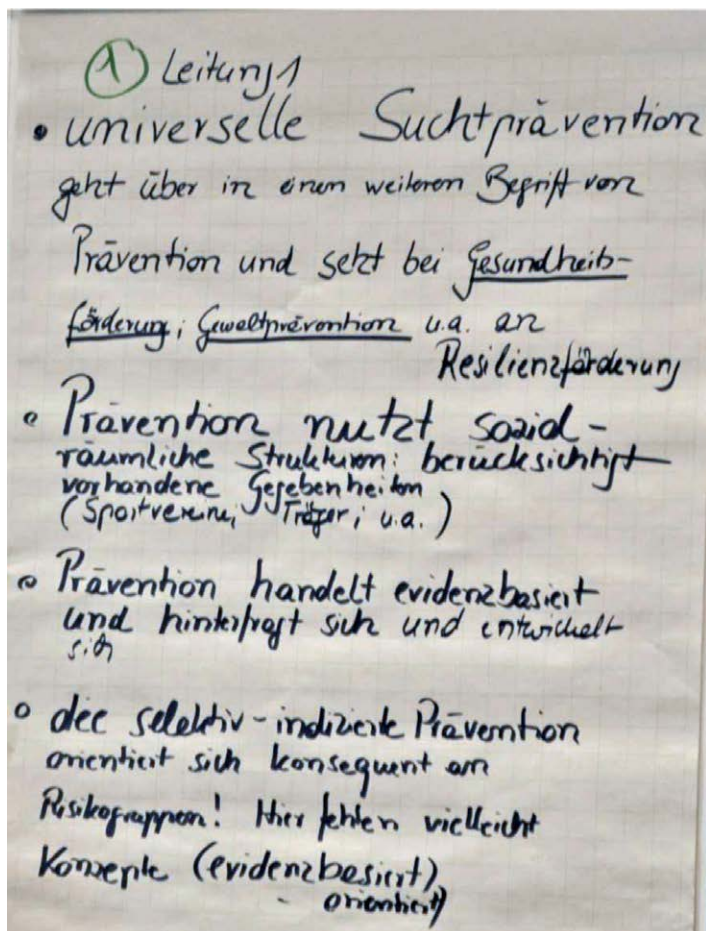 ① Leitung 1
• universelle Suchtprävention
geht über in einen weiteren Begriff von
Prävention und setzt bei Gesundheits-
förderung, Gewaltprävention u.a. an
Resilienzförderung
• Prävention nutzt sozial-
räumliche Strukturen: berücksichtigt
vorhandene Gegebenheiten
(Sportvereine, Träger, u.a.)
• Prävention handelt evidenzbasiert
und hinterfragt sich und entwickelt
sich
• die selektiv-indizierte Prävention
orientiert sich konsequent an
Risikogruppen! Hier fehlen vielleicht
Konzepte (evidenzbasiert)
orientiert)